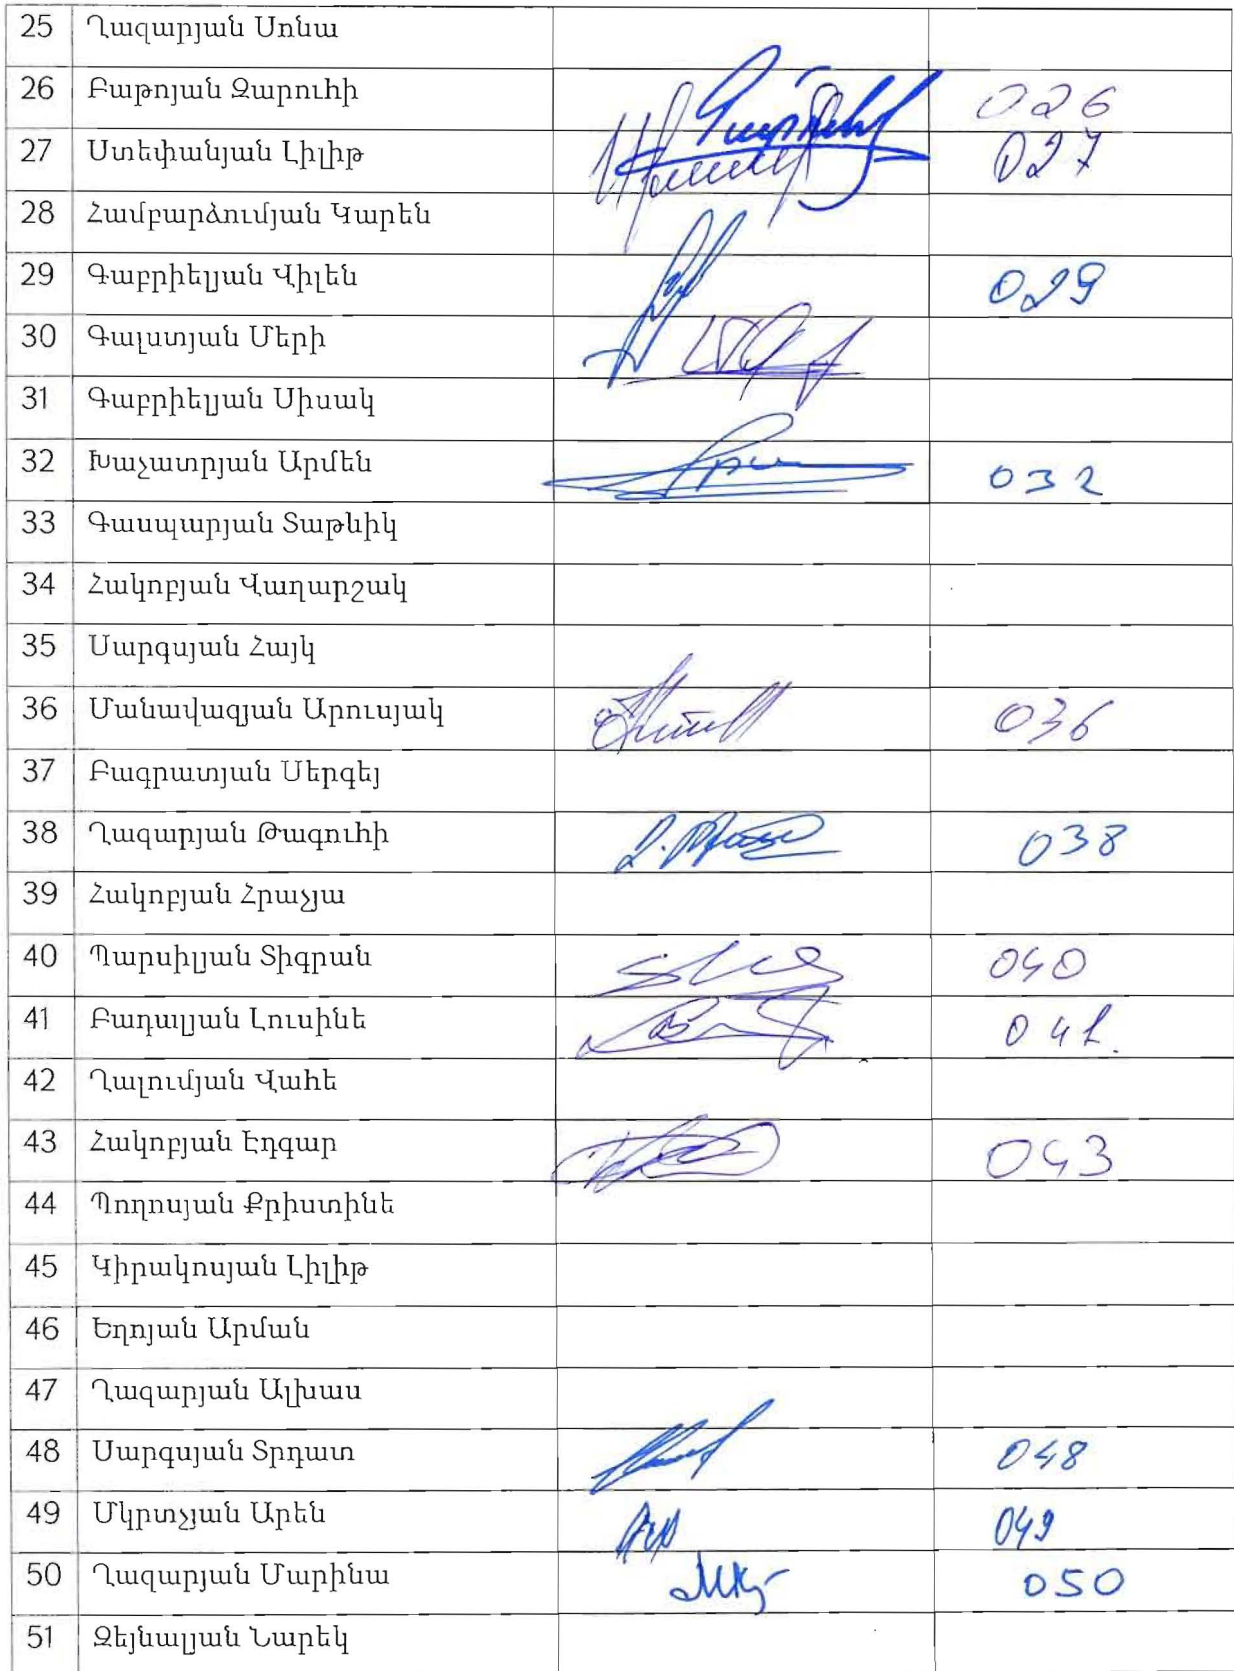 25 Ղազարյան Սոնա
26 Բաթոյան Զարուհի 026
27 Ստեփանյան Լիլիթ 027
28 Համբարձումյան Կարեն
29 Գաբրիելյան Վիլեն 029
30 Գալստյան Մերի
31 Գաբրիելյան Սիսակ
32 Խաչատրյան Արմեն 032
33 Գասպարյան Տաթևիկ
34 Հակոբյան Վաղարշակ
35 Սարգսյան Հայկ
36 Մանավազյան Արուսյակ 036
37 Բագրատյան Սերգեյ
38 Ղազարյան Թագուհի 038
39 Հակոբյան Հրաչյա
40 Պարսիլյան Տիգրան 040
41 Բադալյան Լուսինե 041.
42 Ղալումյան Վահե
43 Հակոբյան Էդգար 043
44 Պողոսյան Քրիստինե
45 Կիրակոսյան Լիլիթ
46 Եղոյան Արման
47 Ղազարյան Ալխաս
48 Սարգսյան Տրդատ 048
49 Մկրտչյան Արեն 049
50 Ղազարյան Մարինա 050
51 Զեյնալյան Նարեկ